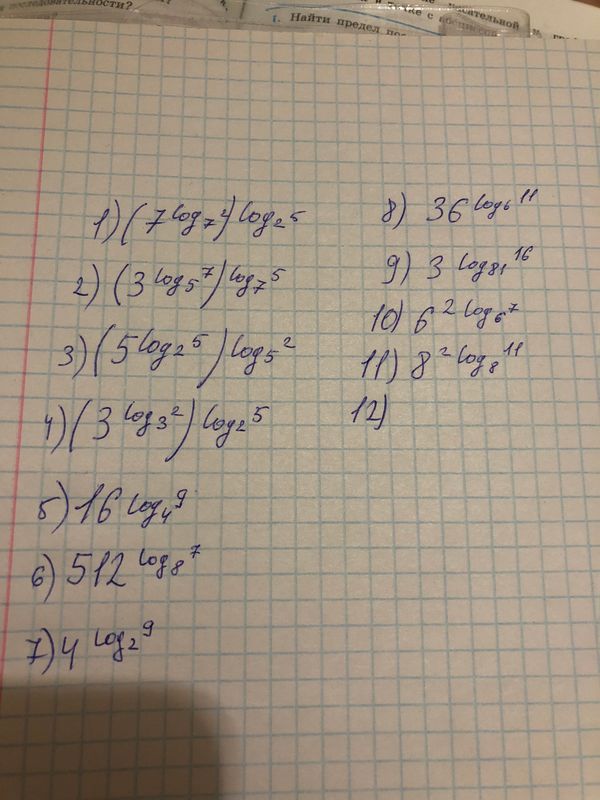 последовательности?
касательной
с абсциссой
1. Найти предел
1) (7^log₇2)^log₂5
2) (3^log₅7)^log₇5
3) (5^log₂5)^log₅2
4) (3^log₃2)^log₂5
5) 16^log₄9
6) 512^log₈7
7) 4^log₂9
8) 36^log₆11
9) 3^log₈₁16
10) 6^2log₆7
11) 8^2log₈11
12)